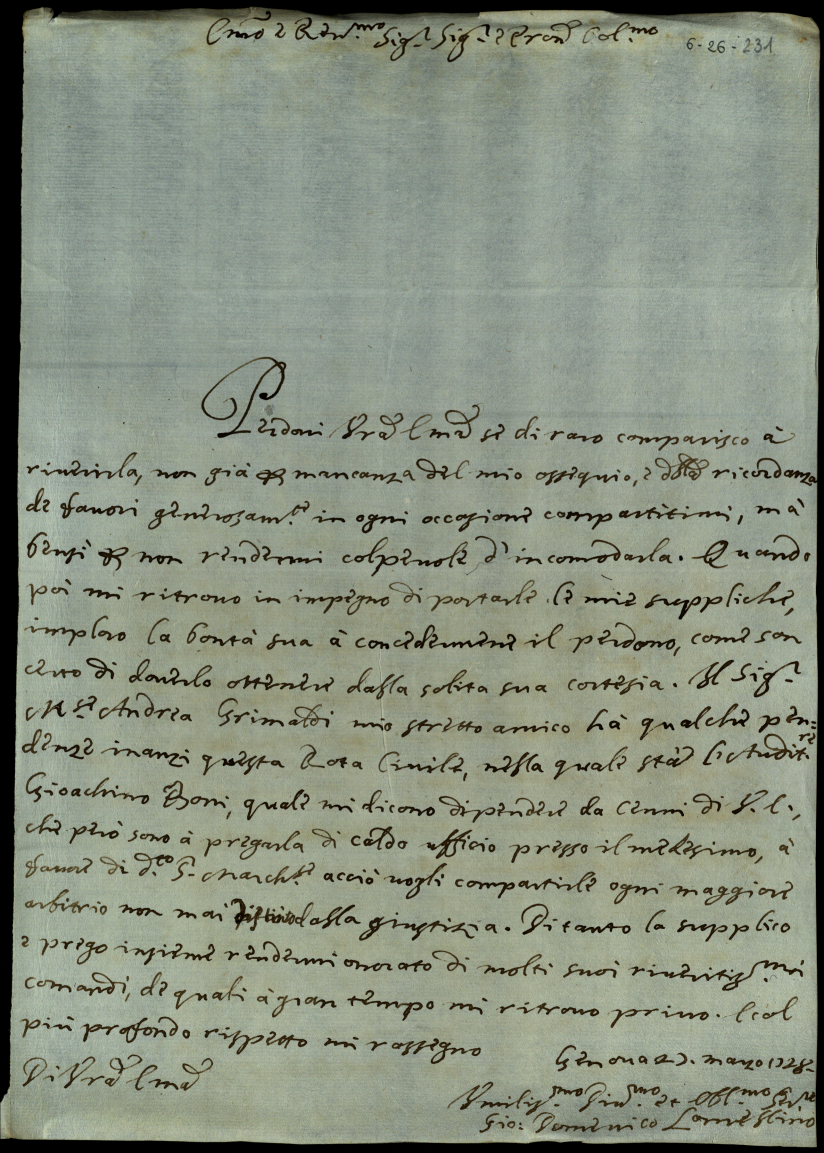 Illmo e Rev.mo Sig.r Sig.r e Pron Col.mo 6-26-231
Perdoni Vra Illma se di raro comparisco à
riuerirla, non già p mancanza del mio ossequio, e della ricordanza
de fauori generosam.te in ogni occasione compartitimi, mà
bensì p non rendermi colpeuole d'incomodarla. Quando
poi mi ritrouo in impegno di portarle le mie suppliche,
imploro la bontà sua à concedermene il perdono, come son
certo di douerlo ottenere dalla solita sua cortesia. Il Sig.r
M.se Andrea Grimaldi mio stretto amico hà qualche pen=
denze inanzi questa Rota Ciuile, nella quale stà l'Audit.re
Gioachino Boni, quale mi dicono dipendere da Cenni di V. I.,
che però sono à pregarla di caldo ufficio presso il medesimo, à
fauore di d.to S.r March.se acciò uogli compartirle ogni maggiore
arbitrio non mai dalla giustizia. Di tanto la supplico
e prego insieme rendermi onorato di molti suoi riueritiss.mi
comandi, de quali à gran tempo mi ritrouo priuo. E col
più profondo rispetto mi rassegno
Di Vra Illma
Genoua 27. marzo 1728
Umiliss.mo Diu.mo et Obl.mo Ser.re
Gio: Domenico Lomellino